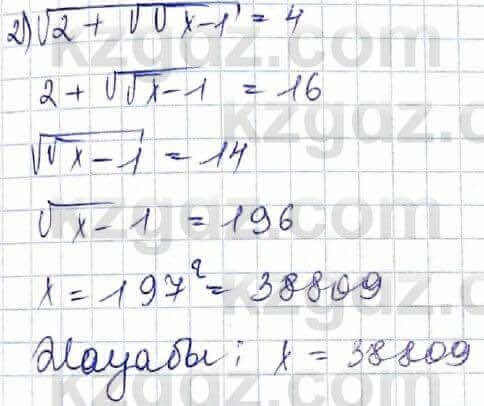 2) √(2 + √(√x - 1)) = 4
2 + √(√x - 1) = 16
√(√x - 1) = 14
√x - 1 = 196
x = 197² = 38809
Жауабы: x = 38809
kzgdz.com
kzgdz.com
kzgdz.com
kzgdz.com